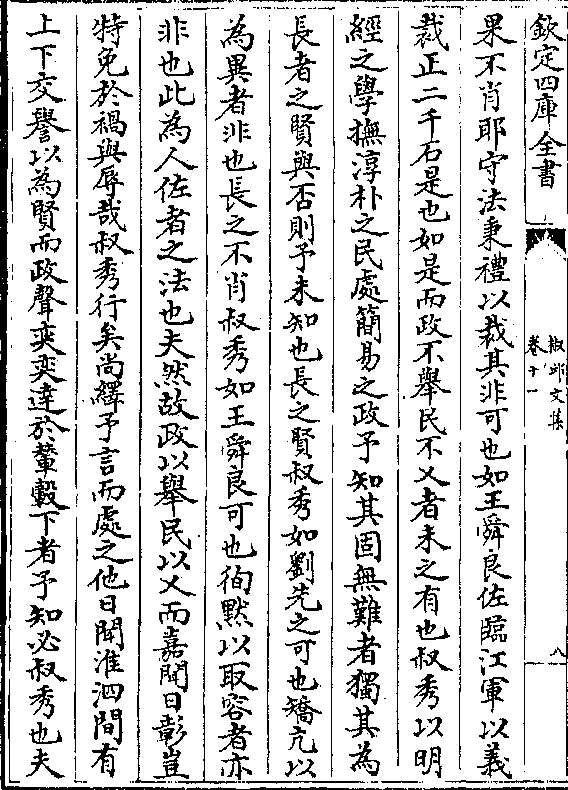 欽定四庫全書
椒邱文集
卷十一
八
果不肖耶守法秉禮以裁其非可也如王舜良佐臨江軍以義
裁正二千石是也如是而政不舉民不乂者未之有也叔秀以明
經之學撫淳朴之民處簡易之政予知其固無難者獨其為
長者之賢與否則予未知也長之賢叔秀如劉先之可也矯亢以
為異者非也長之不肖叔秀如王舜良可也徇默以取容者亦
非也此為人佐者之法也夫然故政以舉民以乂而嘉聞日彰豈
特免於禍與辱哉叔秀行矣尚繹予言而處之他日聞淮泗間有
上下交譽以為賢而政聲奕奕達於輦轂下者予知必叔秀也夫